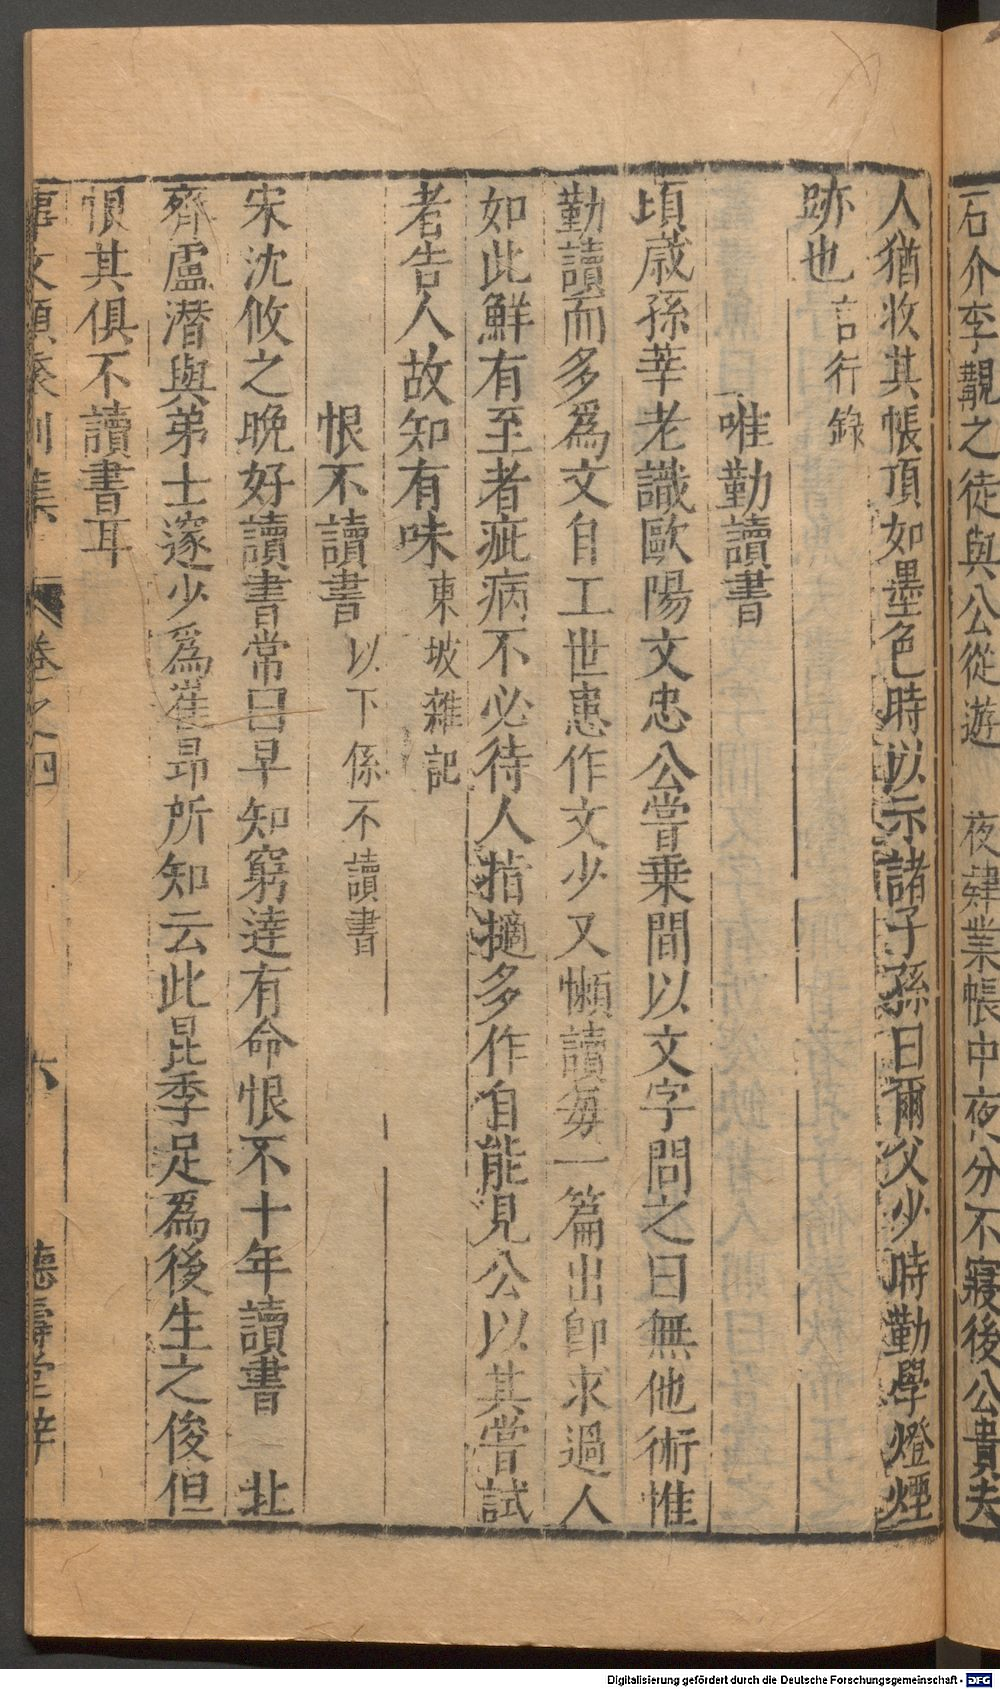 石介李覯之徒與公從遊 夜肄業帳中夜分不寢後公貴夫
人猶收其帳頂如墨色時以示諸子孫曰爾父少時勤學燈煙
跡也言行錄
唯勤讀書
頃歲孫莘老識歐陽文忠公嘗乗間以文字問之曰無他術惟
勤讀而多爲文自工世患作文少又懶讀每一篇出卽求過人
如此鮮有至者疵病不必待人指擿多作自能見公以其嘗試
者告人故知有味東坡雜記
恨不讀書以下係不讀書
宋沈攸之晚好讀書常曰早知窮逹有命恨不十年讀書 北
齊盧潛與弟士邃少爲崔昂所知云此昆季足爲後生之俊但
恨其俱不讀書耳
事文類聚別集 卷之四 六 德壽堂梓
Digitalisierung gefördert durch die Deutsche Forschungsgemeinschaft - DFG